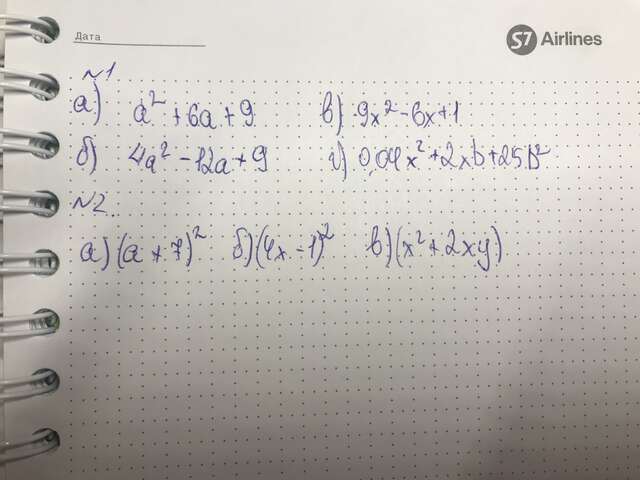 Дата
S7 Airlines
№1
а) a² + 6a + 9 в) 9x² - 6x + 1
б) 4a² - 12a + 9 г) 0,04x² + 2xb + 25b²
№2.
а) (a + 7)² б) (4x - 1)² в) (x² + 2xy)